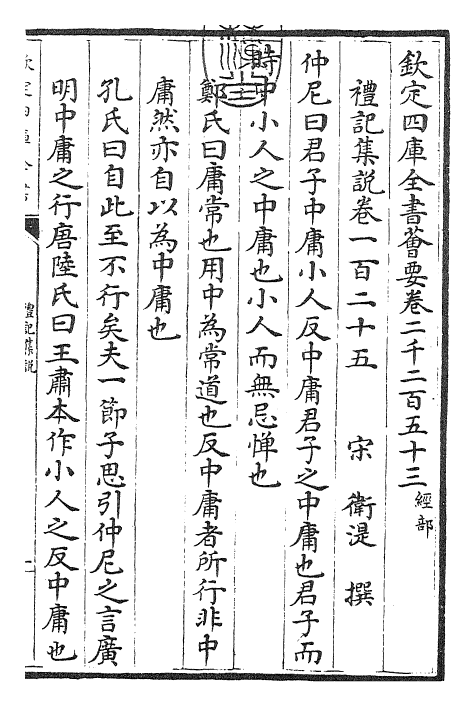 欽定四庫全書薈要卷二千二百五十三 經部
禮記集說卷一百二十五 宋 衛湜 撰
仲尼曰君子中庸小人反中庸君子之中庸也君子而
時中小人之中庸也小人而無忌憚也
鄭氏曰庸常也用中為常道也反中庸者所行非中
庸然亦自以為中庸也
孔氏曰自此至不行矣夫一節子思引仲尼之言廣
明中庸之行唐陸氏曰王肅本作小人之反中庸也
禮記集說